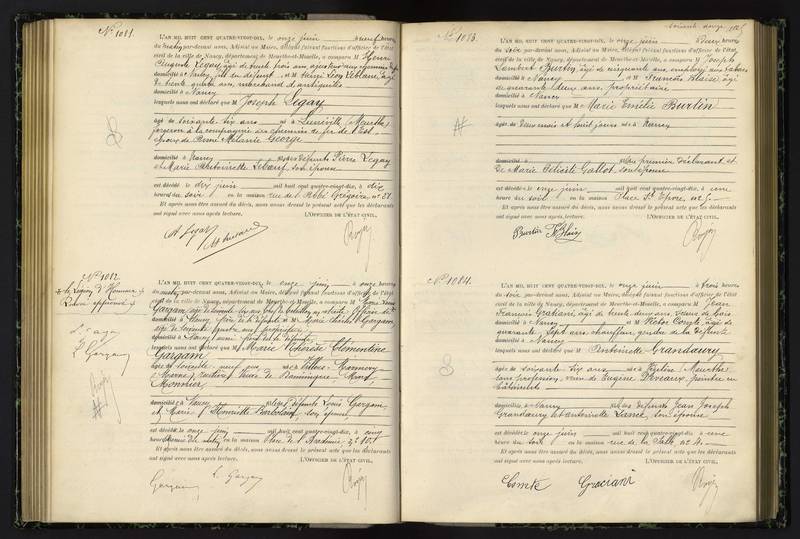 N° 1081.
L'AN MIL HUIT CENT QUATRE-VINGT-DIX, le onze juin à neuf heures
du matin, par-devant nous, Adjoint au Maire, délégué faisant fonctions d'officier de l'état
civil de la ville de Nancy, département de Meurthe-et-Moselle, a comparu M Henri
Legay, âgé de trente trois ans,
domicilié à Nancy, fils du défunt et M Henri Léon Leblanc, âgé
de trente quatre ans, marchand d'antiquités
domicilié à Nancy
lesquels nous ont déclaré que M Joseph Legay
âgé de soixante-dix ans né à Lunéville (Meurthe)
forgeron à la compagnie des chemins de fer de l'Est
époux de Mélanie George
domicilié à Nancy fils des défunts Pierre Legay
et Marie Antoinette Leboeuf, son épouse
est décédé le dix juin mil huit cent quatre-vingt-dix, à dix
heures du soir, en la maison rue de l'Abbé Grégoire, n° 21
Et après nous être assuré du décès, nous avons dressé le présent acte que les déclarants
ont signé avec nous après lecture. L'OFFICIER DE L'ÉTAT CIVIL,
H. Legay
N° 1082
de la Légion d'Honneur
L'AN MIL HUIT CENT QUATRE-VINGT-DIX, le onze juin à onze heures
du matin, par-devant nous, Adjoint au Maire, délégué faisant fonctions d'officier de l'état
civil de la ville de Nancy, département de Meurthe-et-Moselle, a comparu M Louis
Gargam
domicilié à Nancy et M Marie Charles Gargam
domicilié à Nancy
lesquels nous ont déclaré que M Marie Thérèse Clémentine
Gargam
âgée de soixante neuf ans née à Villers
(Marne), rentière, veuve de Dominique
Monnier
domiciliée à Nancy fille des défunts Louis Gargam
et Marie Henriette son épouse
est décédée le onze juin mil huit cent quatre-vingt-dix, à cinq
heures du matin, en la maison Place de l'Académie,
Et après nous être assuré du décès, nous avons dressé le présent acte que les déclarants
ont signé avec nous après lecture. L'OFFICIER DE L'ÉTAT CIVIL,
Gargam L. Gargam
N° 1083.
L'AN MIL HUIT CENT QUATRE-VINGT-DIX, le onze juin à Deux heures
du soir, par-devant nous, Adjoint au Maire, délégué faisant fonctions d'officier de l'état
civil de la ville de Nancy, département de Meurthe-et-Moselle, a comparu M Joseph
Lambert Burtin, âgé de cinquante ans, employé aux tabacs
domicilié à Nancy et M François Blaise âgé
de quarante deux ans, propriétaire
domicilié à Nancy
lesquels nous ont déclaré que M Marie Emélie Burtin
âgée de Deux mois et huit jours née à Nancy
domiciliée à fille du premier déclarant et
De Marie Félicité Gallot, son épouse
est décédée le onze juin mil huit cent quatre-vingt-dix, à une
heure du soir, en la maison Place St Epvre, n° 5
Et après nous être assuré du décès, nous avons dressé le présent acte que les déclarants
ont signé avec nous après lecture. L'OFFICIER DE L'ÉTAT CIVIL,
Burtin Fs Blaise
N° 1084.
L'AN MIL HUIT CENT QUATRE-VINGT-DIX, le onze juin à trois heures
du soir, par-devant nous, Adjoint au Maire, délégué faisant fonctions d'officier de l'état
civil de la ville de Nancy, département de Meurthe-et-Moselle, a comparu M Jean
François Gratiani, âgé de trente deux ans, scieur de bois
domicilié à Nancy et M Victor Comte, âgé de
quarante sept ans, chauffeur, gendre de la défunte
domicilié à Nancy
lesquels nous ont déclaré que M Antoinette Grandaury
âgée de soixante dix ans née à (Meurthe)
sans profession, veuve de Eugène Deveaux, peintre en
bâtiments
domiciliée à Nancy fille des défunts Jean Joseph
Grandaury et Antoinette son épouse
est décédée le onze juin mil huit cent quatre-vingt-dix, à une
heure du soir, en la maison rue de la Salle, n° 4
Et après nous être assuré du décès, nous avons dressé le présent acte que les déclarants
ont signé avec nous après lecture. L'OFFICIER DE L'ÉTAT CIVIL,
Comte Graciani